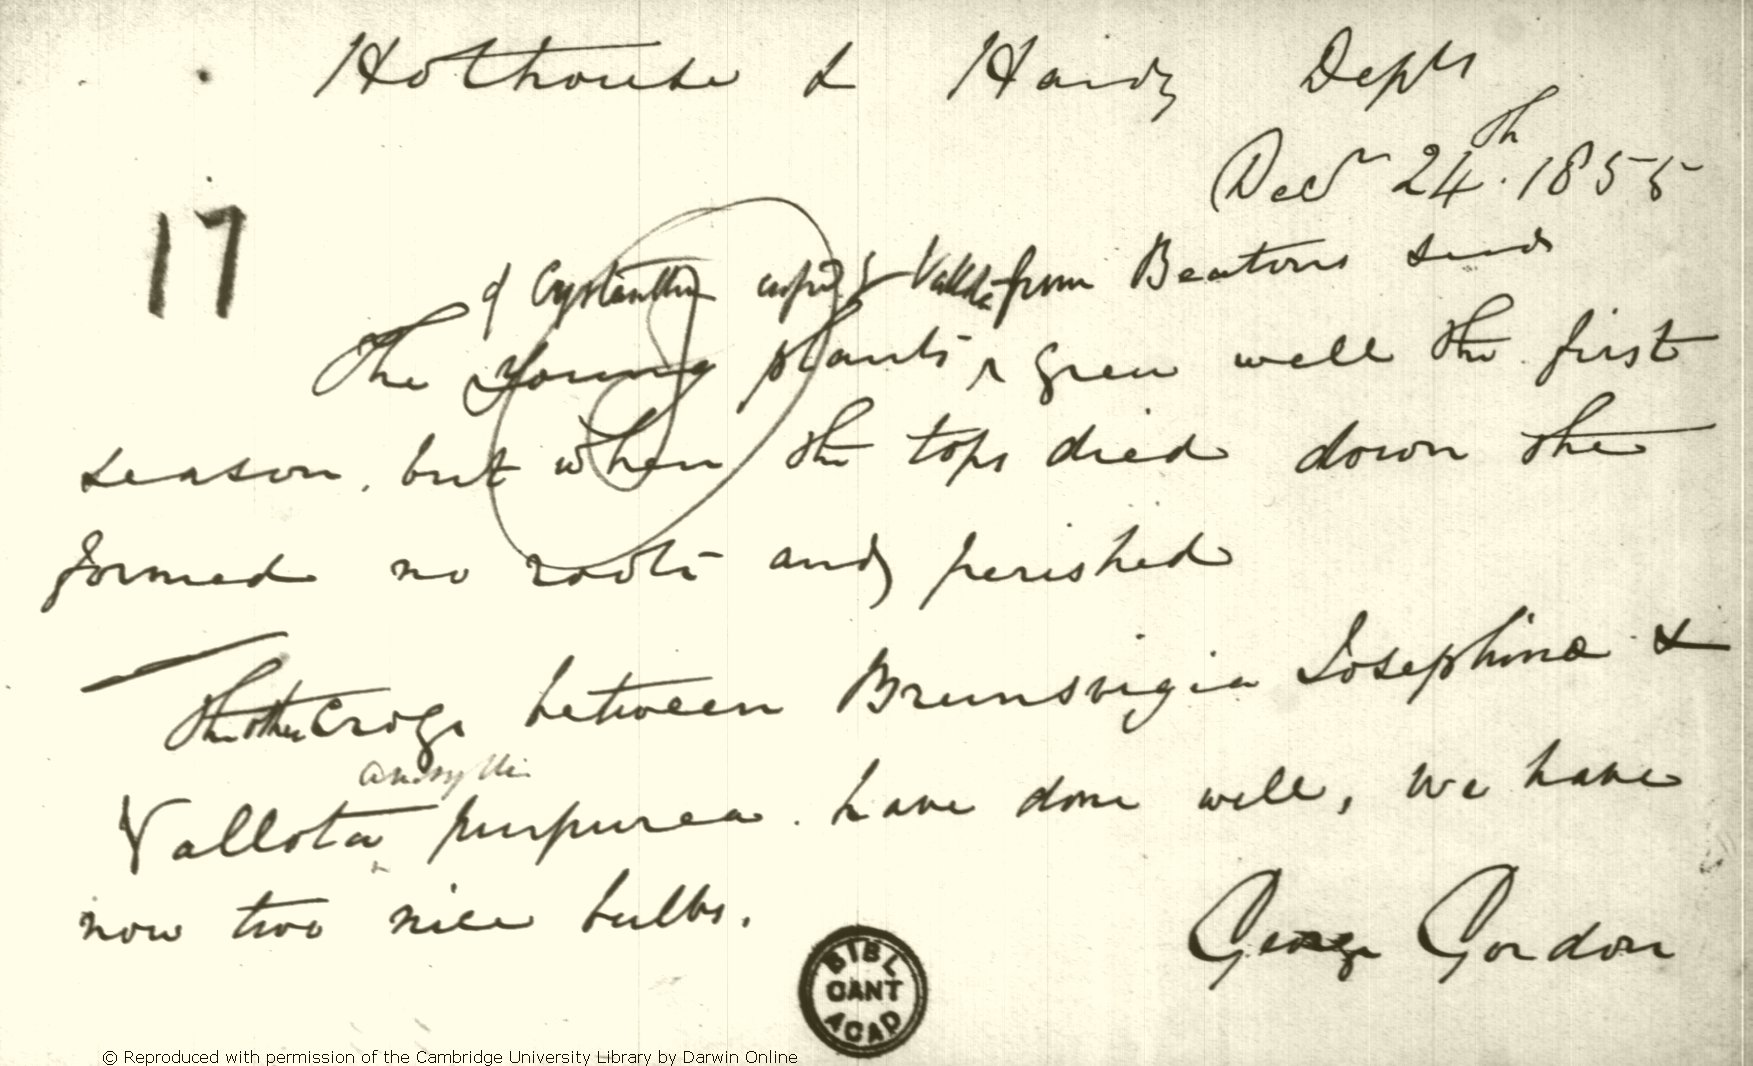 Hothouse & Hardy Depts
Decr 24th. 1855
17
of Cyrtanthus & Vallota from Beatons seeds
The young plants grew well the first
season, but when the tops died down the
formed no roots and perished
The other Cross between Brunsvigia Josephinae &
Amaryllis
Vallota purpurea. have done well, we have
now two nice bulbs.
George Gordon
BIBL
CANT
ACAD
© Reproduced with permission of the Cambridge University Library by Darwin Online